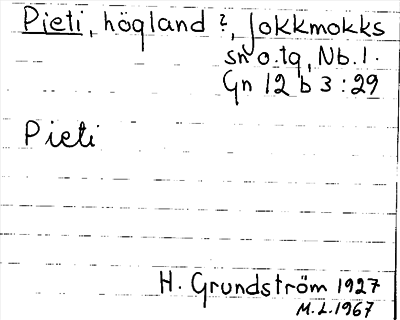 Pieti, högland ?, Jokkmokks
sn o. tg, Nb. l.
Gn 12 b 3 : 29
Pieti
H. Grundström 1927
M.L. 1967